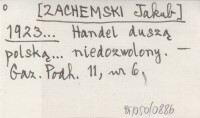 [ZACHEMSKI Jakub]
1923... Handel duszą
polską... niedozwolony. —
Gaz. Podh. 11, nr 6,